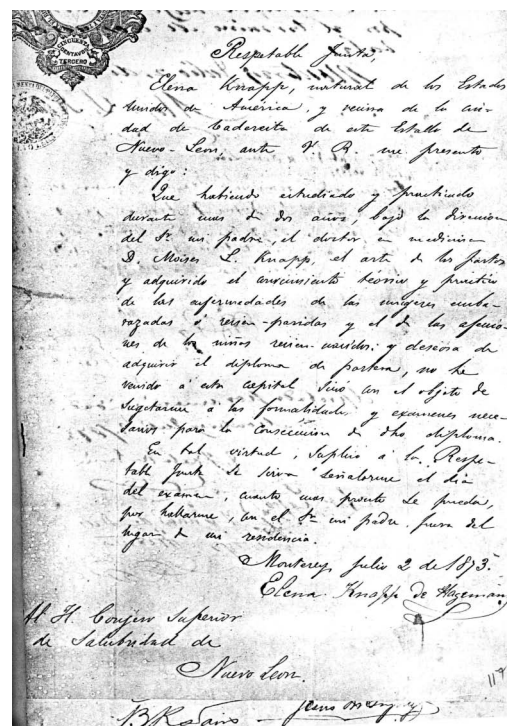 CINCUENTA
CENTAVOS
TERCERO
Respetable Junta,
Elena Knapp, natural de los Estados
Unidos de América, y vecina de la ciu-
dad de Cadereita de este Estado de
Nuevo-Leon, ante V. R. me presento
y digo:
Que habiendo estudiado y practicado
durante mas de dos años, bajo la direccion
del Sr. mi padre, el doctor en medicina
D. Moises L. Knapp, el arte de los partos
y adquirido el conocimiento teorico y practico
de las enfermedades de las mugeres emba-
razadas ó recien-paridas y el de las afeccio-
nes de los niños recien-nacidos; y deseosa de
adquirir el diploma de partera, no he
venido á esta capital sinó con el objeto de
sugetarme a las formalidades y examenes nece-
sarios para la consecucion de dho diploma.
En tal virtud, suplico á la Respe-
table Junta se sirva señalarme el dia
del examen, cuanto mas pronto se pueda,
por hallarme, con el Sr. mi padre, fuera del
lugar de mi residencia.
Monterey Julio 2 de 1873.
Elena Knapp de Hageman
Al H. Consejo Superior
de Salubridad de
Nuevo Leon.